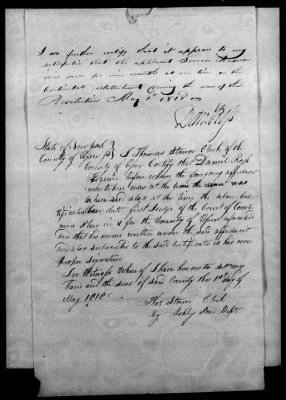 I do further certify that it appears to my
satisfaction that the applicant
was for nine months at one time on the
Continental establishment during the war of the
Revolution May 1st 1818
D Ross
State of New York
County of Essex } I Thomas Stower Clerk of the
County of Essex Certify that Daniel Ross
before whom the foregoing affidavit
was at the time the same was
is also at the time the above
date first Judge of the Court of Com
mon Pleas in & for the County of Essex aforesaid
and that his name written under the said affidavit
and also subscribed to the said certificate is his own
proper signature
In Witness whereof I have hereunto set my
hand and the seal of said County this 1st day of
May 1818
Thos Stower Clerk
by Dept